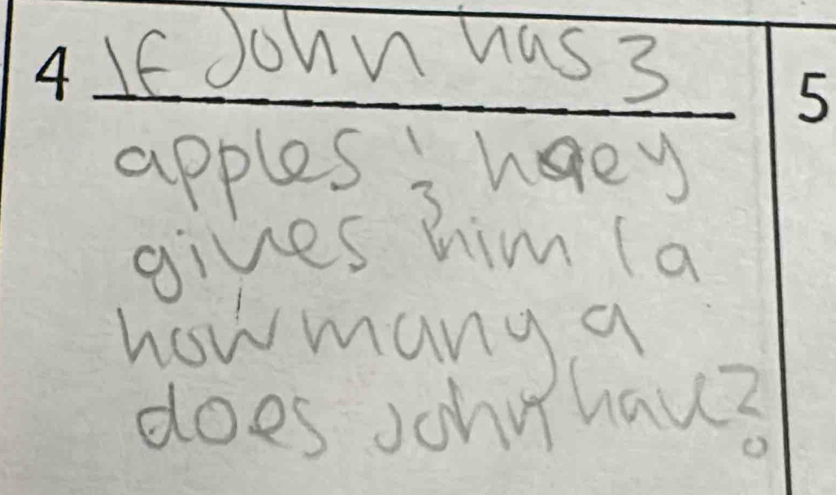 4 If John has 3 5
apples
gives him 1 a
how many a
does John have?